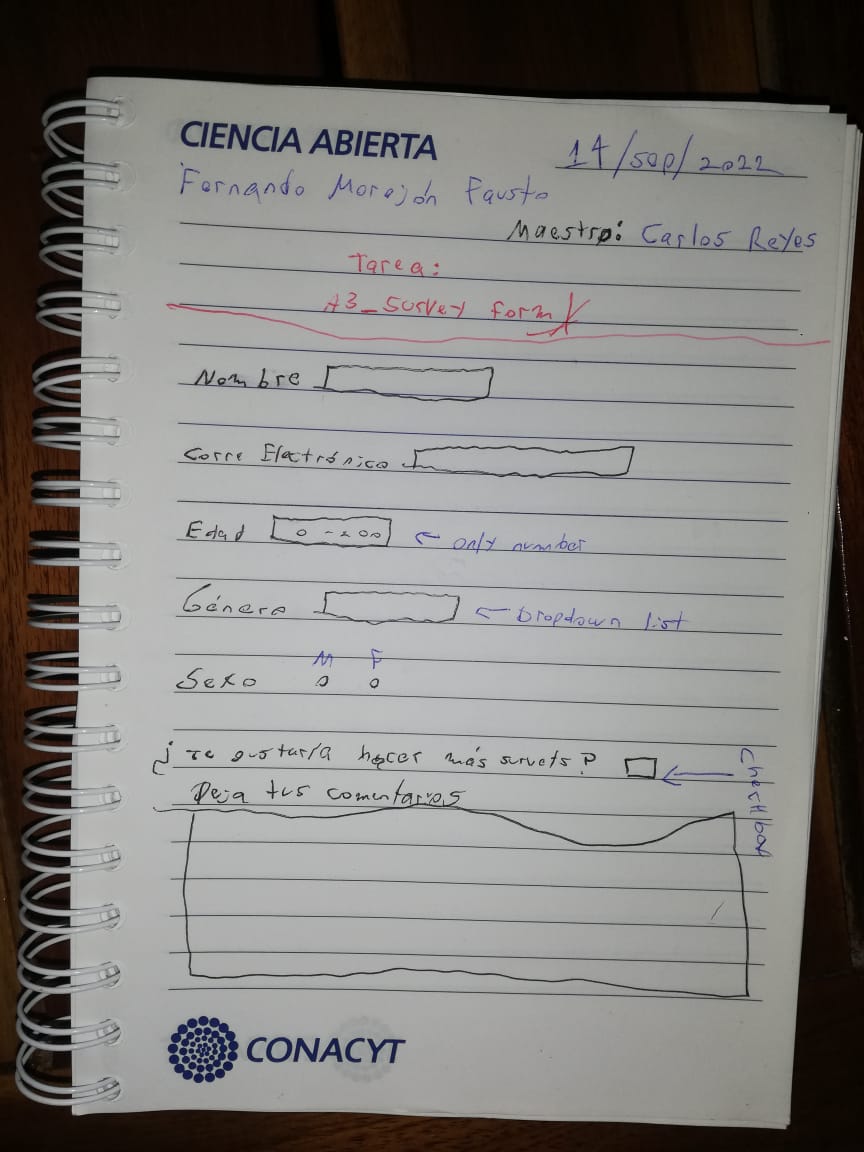 CIENCIA ABIERTA
14/sep/2022
Fernando Morejón Fausto
Maestro: Carlos Reyes
Tarea:
A3_Survey form
Nombre
Corre Electrónico
Edad 0 - 200 ← only number
Género ← Dropdown list
M F
Sexo
¿Te gustaría hacer más surveys?
Deja tus comentarios
CONACYT